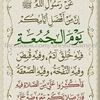 عن رسول الله ﷺ
إن من أفضل أيامكم
يوم الجمعة
فيه خلق آدم وفيه قبض
وفيه النفخة وفيه الصعقة
فأكثروا علي من الصلاة فيه